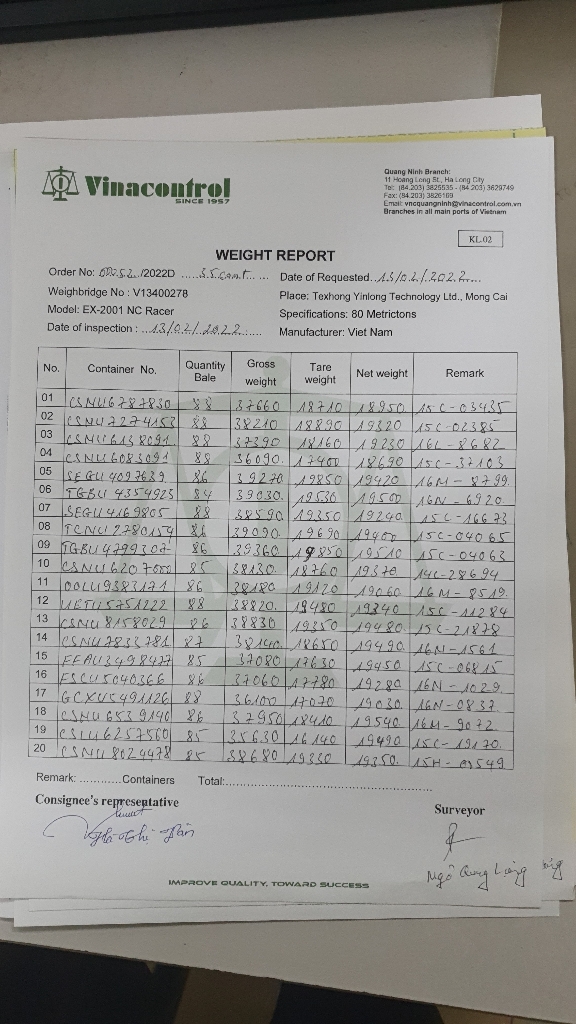 Vinacontrol
SINCE 1957
Quang Ninh Branch:
11 Hoang Long St., Ha Long City
Tel: (84.203) 3825535 - (84.203) 3629749
Fax: (84.203) 3826169
Email: vncquangninh@vinacontrol.com.vn
Branches in all main ports of Vietnam
KL.02
WEIGHT REPORT
Order No: 00252/2022D 35 cont Date of Requested 13/02/2022
Weighbridge No : V13400278 Place: Texhong Yinlong Technology Ltd., Mong Cai
Model: EX-2001 NC Racer Specifications: 80 Metrictons
Date of inspection : 13/02/2022 Manufacturer: Viet Nam
No. Container No. Quantity Bale Gross weight Tare weight Net weight Remark
01 CSNU6787830 88 37660 18710 18950 15C-03435
02 CSNU7274153 88 38210 18890 19320 15C-02385
03 CSNU6138091 88 37390 18160 19230 16L-8682
04 CSNU6083091 88 36090 17400 18690 15C-37103
05 SEGU4097639 86 39270 19850 19420 16M-8799
06 TGBU4354923 84 39030 19530 19500 16N-6920
07 SEGU4169805 88 38590 19350 19240 15C-16673
08 TCNU2780154 86 39090 19690 19400 15C-04065
09 TGBU4799307 86 39360 19850 19510 15C-04063
10 CSNU6207000 85 38130 18760 19370 14C-28694
11 OOLU9383171 86 38180 19120 19060 16M-8519
12 UETU5751222 88 38820 19480 19340 15C-11284
13 CSNU8158029 86 38830 19350 19480 15C-21878
14 CSNU7833781 87 38140 18650 19490 16N-1561
15 FFAU3498477 85 37080 17630 19450 15C-06815
16 FSCU5040366 86 37060 17780 19280 16N-1029
17 GCXU5491126 88 36100 17070 19030 16N-0837
18 CSNU6539140 86 37950 18410 19540 16M-9072
19 CSLU6257560 85 35630 16140 19490 15C-19170
20 CSNU8024478 85 38680 19330 19350 15H-03549
Remark: ............Containers Total:
Consignee's representative Surveyor
IMPROVE QUALITY, TOWARD SUCCESS